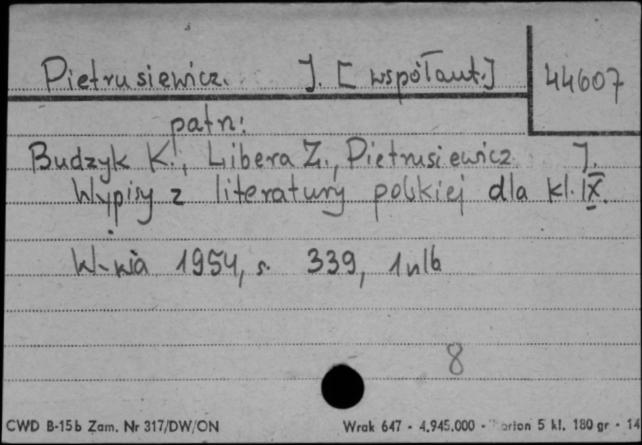 Pietrusiewicz. J. [współaut.] 44607
patrz:
Budzyk K., Libera Z., Pietrusiewicz J.
Wypisy z literatury polskiej dla kl. IX.
W-wa 1954, s. 339, 1 nlb
8
CWD B-15b Zam. Nr 317/DW/ON Wrak 647 - 4.945.000 - 5 kl. 180 gr -